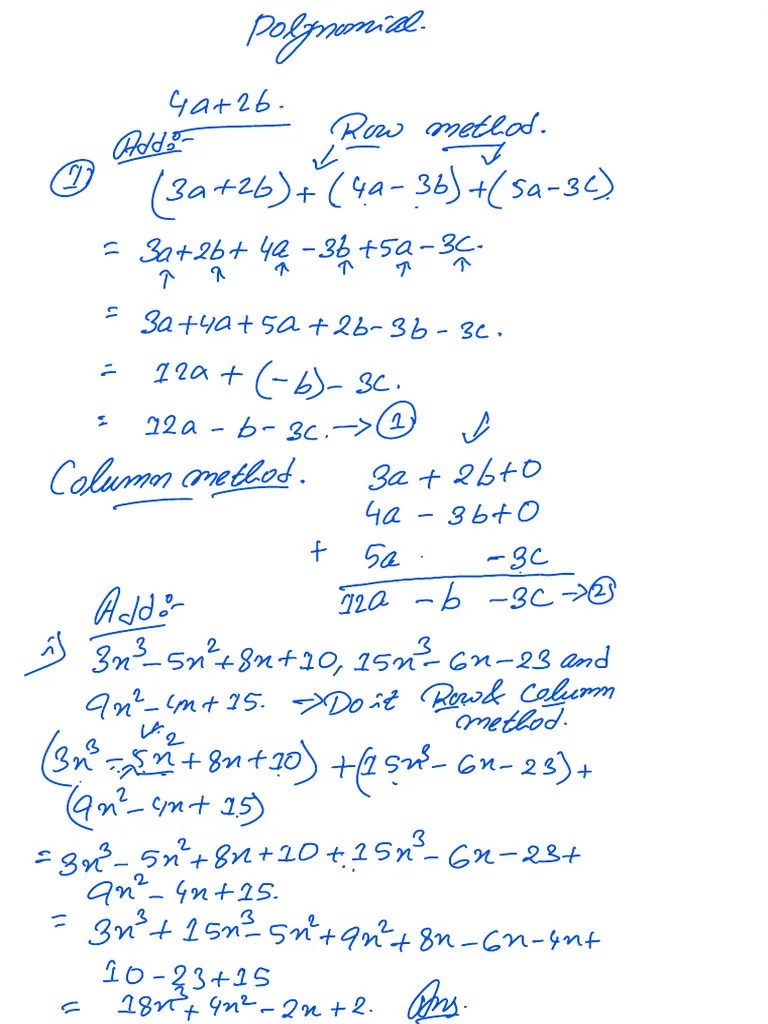 Polynomial.
4a+2b.
Add:-
Row method.
① (3a+2b)+(4a-3b)+(5a-3c)
= 3a+2b+4a-3b+5a-3c.
= 3a+4a+5a+2b-3b-3c.
= 12a+(-b)-3c.
= 12a-b-3c.→①
Column method.
3a+2b+0
4a-3b+0
+ 5a -3c
12a -b -3c→②
Add:-
i) 3x³-5x²+8x+10, 15x³-6x-23 and
9x²-4x+15. →Do it Row & Column
method.
(3x³-5x²+8x+10)+(15x³-6x-23)+
(9x²-4x+15)
=3x³-5x²+8x+10+15x³-6x-23+
9x²-4x+15.
= 3x³+15x³-5x²+9x²+8x-6x-4x+
10-23+15
= 18x³+4x²-2x+2. Ans.